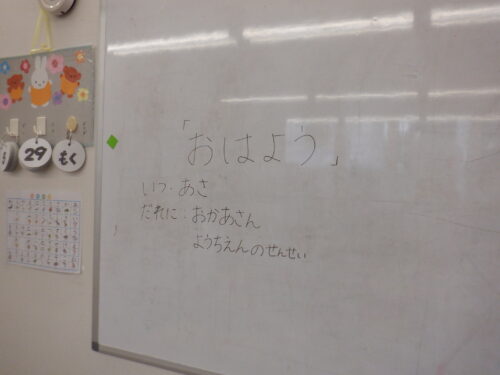 「おはよう」
いつ・あさ
だれに：おかあさん
ようちえんのせんせい
29
もく